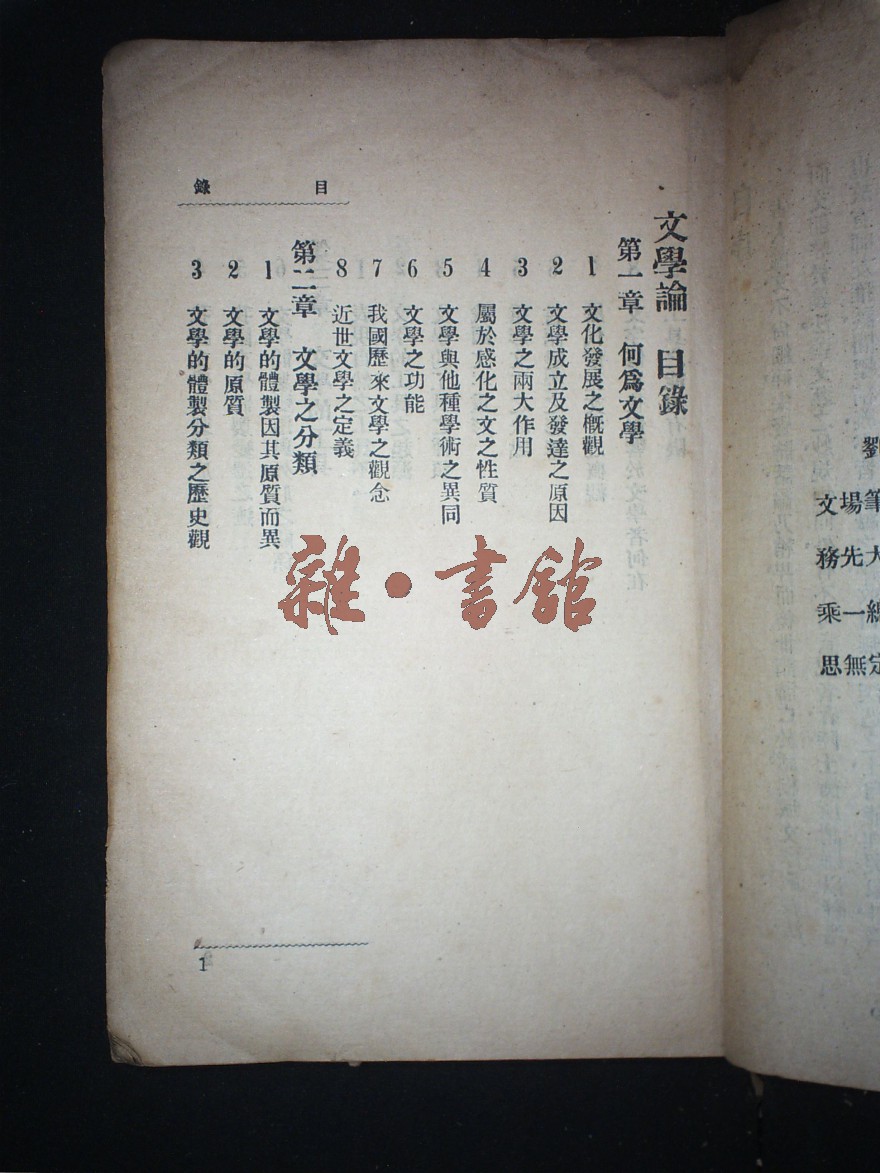 文學論 目錄
第一章 何爲文學
1 文化發展之概觀
2 文學成立及發達之原因
3 文學之兩大作用
4 屬於感化之文之性質
5 文學與他種學術之異同
6 文學之功能
7 我國歷來文學之觀念
8 近世文學之定義
第二章 文學之分類
1 文學的體製因其原質而異
2 文學的原質
3 文學的體製分類之歷史觀
目錄
1
雜·書館
劉
筆場文
先務
一乘
定無思